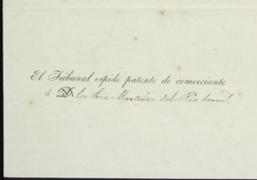 El Tribunal espide patente de comerciante
á D. los Sres. Martinez del Rio herm.